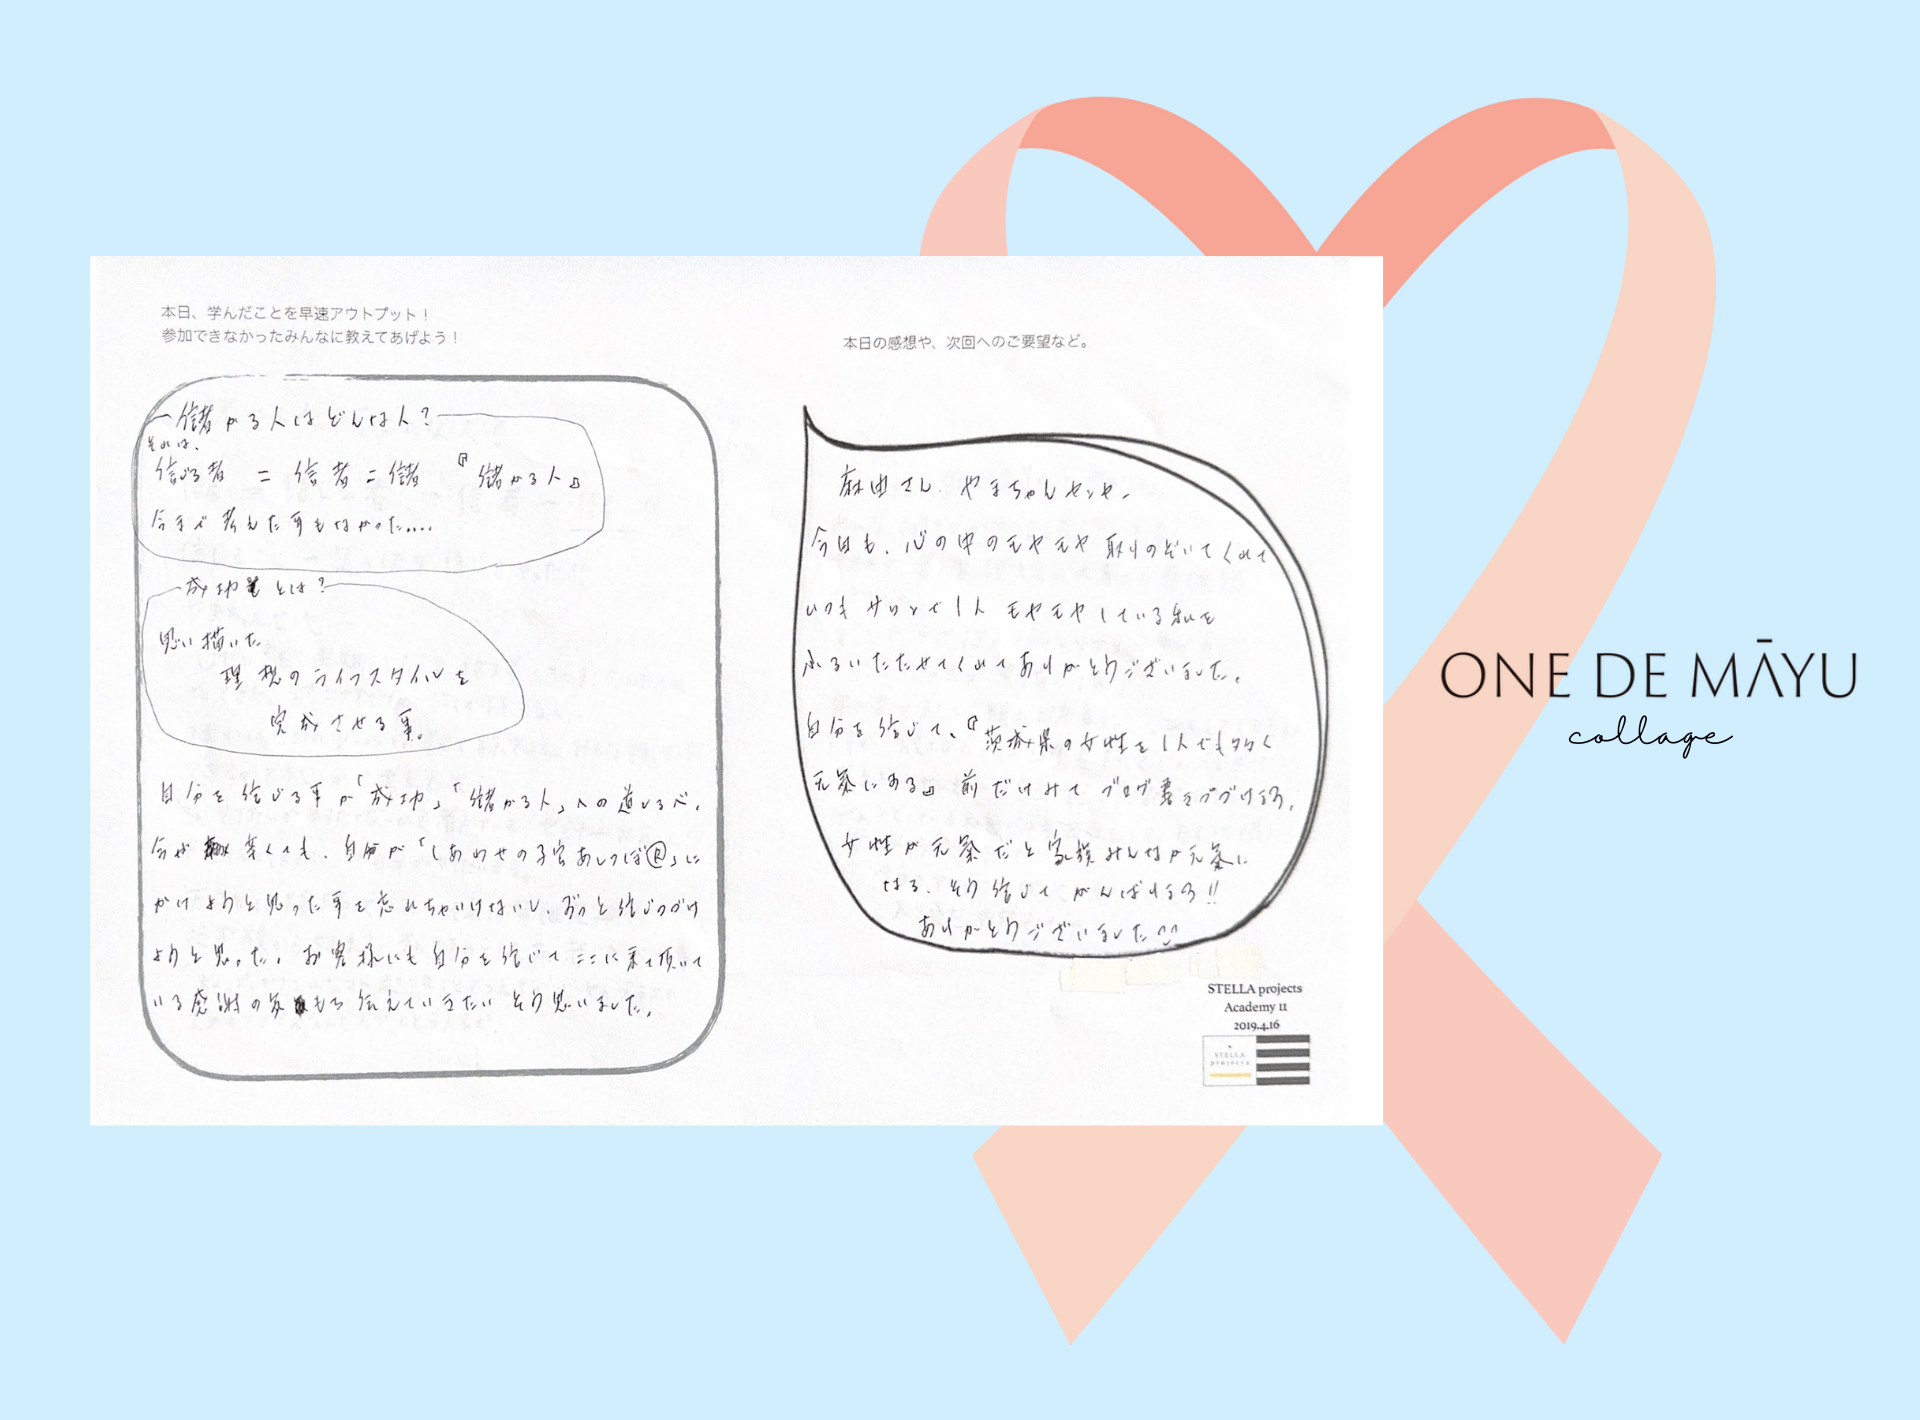 本日、学んだことを早速アウトプット！
参加できなかったみんなに教えてあげよう！
儲かる人はどんな人？
それは、
信じる者 = 信者 = 儲 『儲かる人』
今まで考えた事もなかった....
成功とは？
思い描いた
理想のライフスタイルを
完成させる事。
自分を信じる事が「成功」「儲かる人」への道しるべ。
今が辛くても、自分が「しあわせの子宮あしつぼⓇ」に
かけようと思った事を忘れちゃいけないし、ずっと信じつづけ
ようと思った。お客様にも自分を信じてここに来て頂いて
いる感謝の気もち伝えていきたいそう思いました。
本日の感想や、次回へのご要望など。
麻由さん、やまちゃんセンセー
今日も、心の中のモヤモヤ取りのぞいてくれて
いつもサロンで1人モヤモヤしている私を
ふるいたたせてくれてありがとうございました。
自分を信じて、『茨城県の女性を1人でも多く
元気にする』前だけみてブログ書きつづけるぞ。
女性が元気だと家族みんなが元気に
なる、そう信じてがんばるぞ!!
ありがとうございました
STELLA projects
Academy 11
2019.4.16
STELLA
projects
ONE DE MĀYU
collage